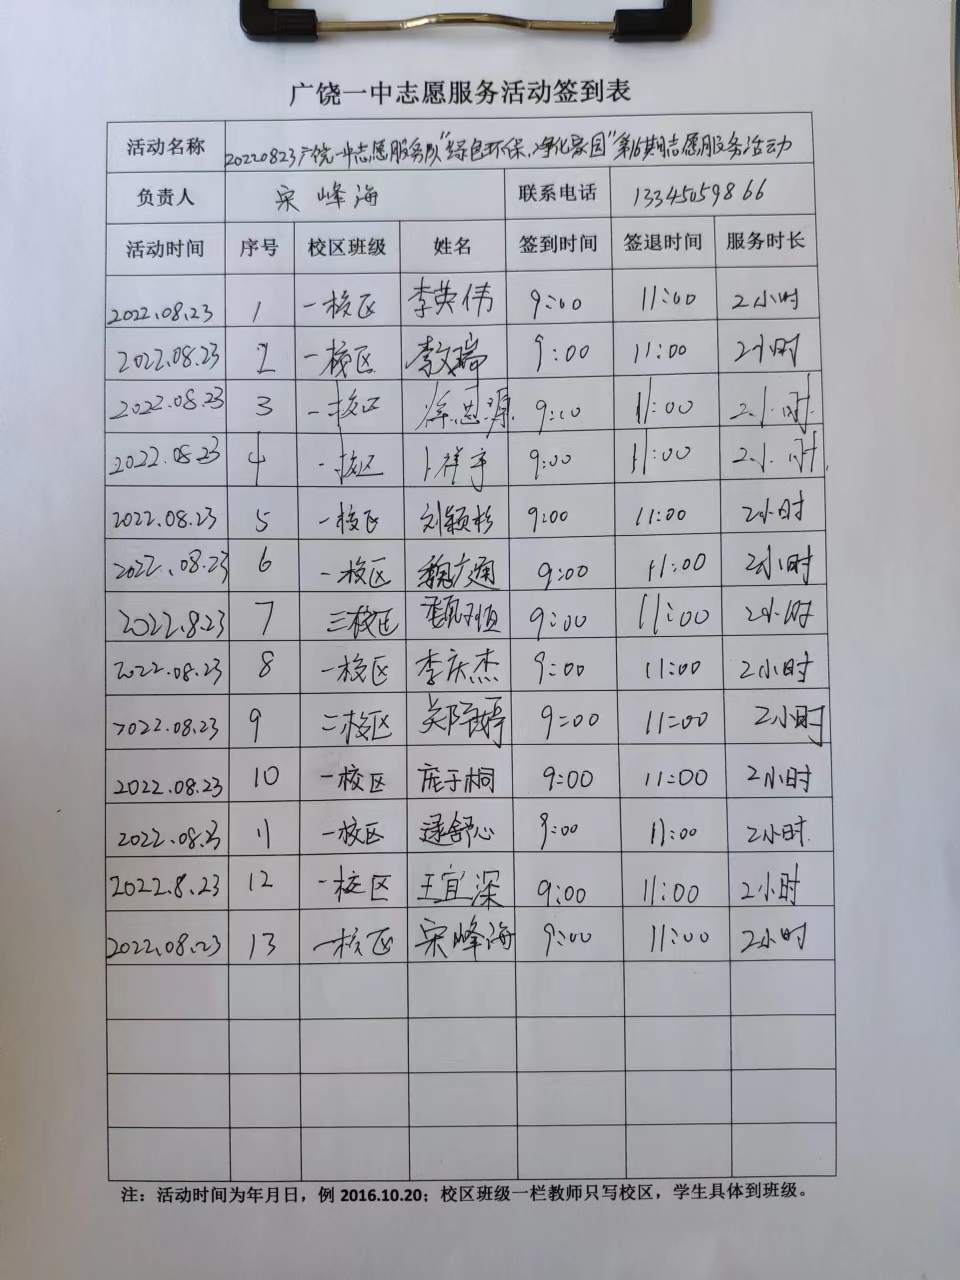 广饶一中志愿服务活动签到表
活动名称 20220823广饶一中志愿服务队“绿色环保、净化家园”第16期志愿服务活动
负责人 宋峰海 联系电话 13345059866
活动时间 序号 校区班级 姓名 签到时间 签退时间 服务时长
2022.08.23 1 一校区 李英伟 9:00 11:00 2小时
2022.08.23 2 一校区 李文瑞 9:00 11:00 2小时
2022.08.23 3 一校区 9:00 11:00 2小时
2022.08.23 4 一校区 卜祥宇 9:00 11:00 2小时
2022.08.23 5 一校区 刘颖杉 9:00 11:00 2小时
2022.08.23 6 一校区 魏广通 9:00 11:00 2小时
2022.8.23 7 三校区 9:00 11:00 2小时
2022.08.23 8 一校区 李庆杰 9:00 11:00 2小时
2022.08.23 9 二校区 9:00 11:00 2小时
2022.08.23 10 一校区 庞于桐 9:00 11:00 2小时
2022.08.23 11 一校区 逯舒心 9:00 11:00 2小时
2022.8.23 12 一校区 王宜深 9:00 11:00 2小时
2022.08.23 13 一校区 宋峰海 9:00 11:00 2小时
注：活动时间为年月日，例 2016.10.20；校区班级一栏教师只写校区，学生具体到班级。